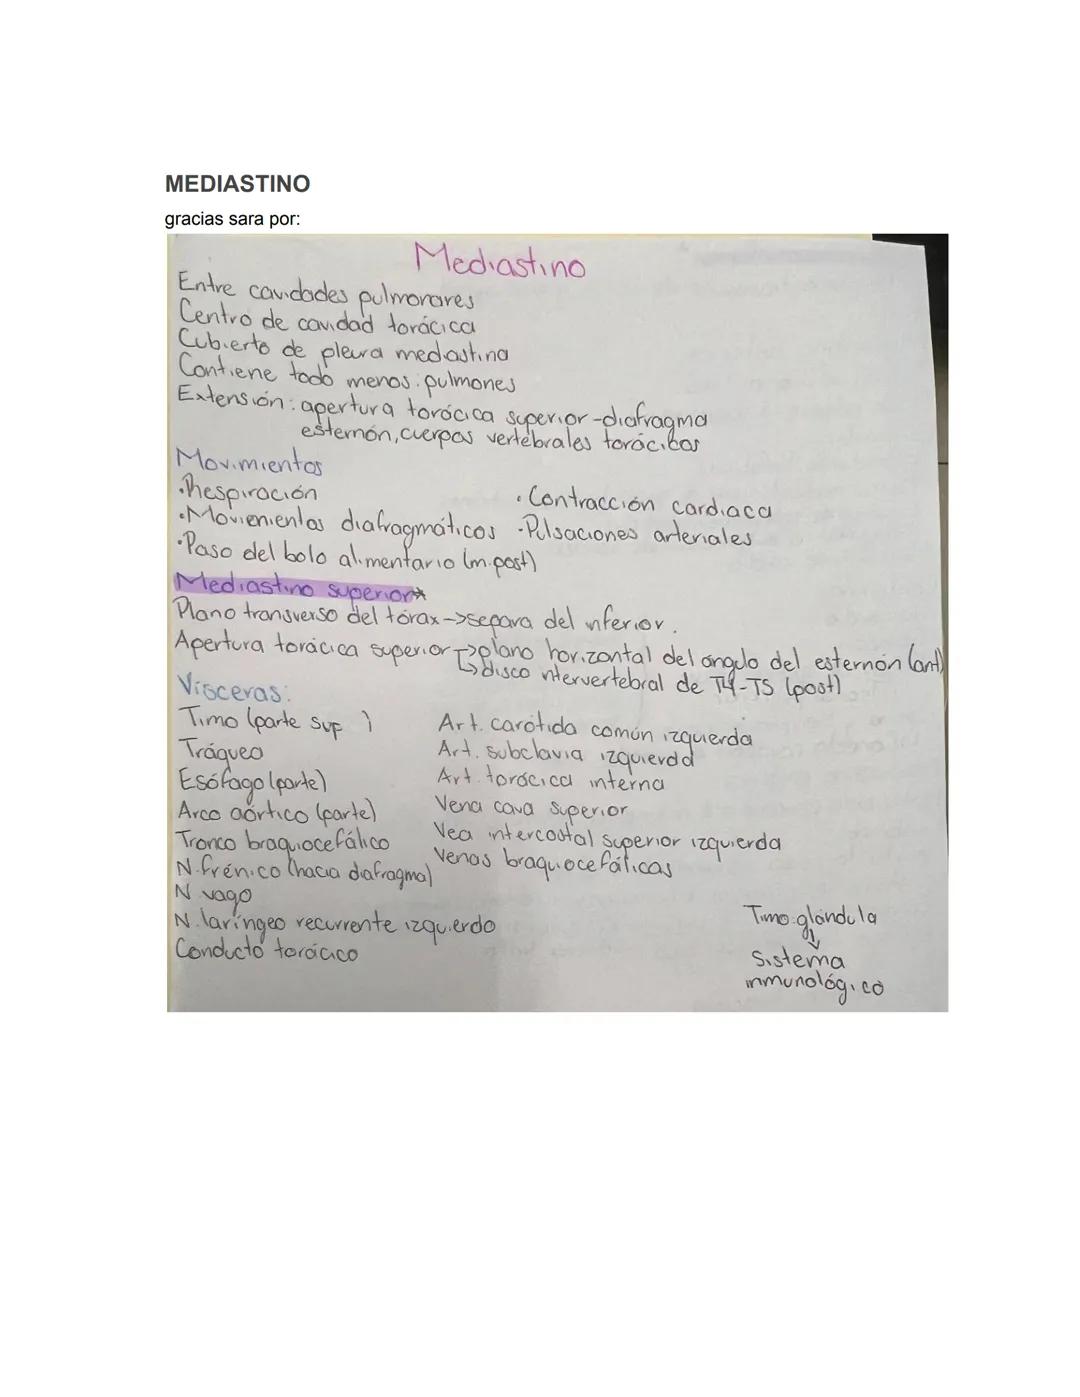 MEDIASTINO
gracias sara por:
Mediastino
Entre cavidades pulmonares
Centro de cavidad torácica
Cubierto de pleura mediastina
Contiene todo menos: pulmones
Extensión: apertura torácica superior - diafragma
esternón, cuerpos vertebrales torácicos
Movimientos
·Respiración
·Contracción cardiaca
·Movienientos diafragmáticos
·Pulsaciones arteriales
·Paso del bolo alimentario (m. post)
Mediastino superior*
Plano transverso del tórax->separa del inferior.
Apertura torácica superior ->plano horizontal del ángulo del esternón (ant)
->disco intervertebral de T4-T5 (post)
Vísceras:
Timo (parte sup )
Tráqueo
Esófago (parte)
Arco aórtico (parte)
Tronco braquiocefálico
N. frénico (hacia diafragma)
N. vago
N. laríngeo recurrente izquierdo
Conducto torácico
Art. carótida común izquierda
Art. subclavia izquierda
Art. torácica interna
Vena cava superior
Vea intercostal superior izquierda
Venas braquiocefálicas
Timo: glándula
↓
Sistema
inmunológico